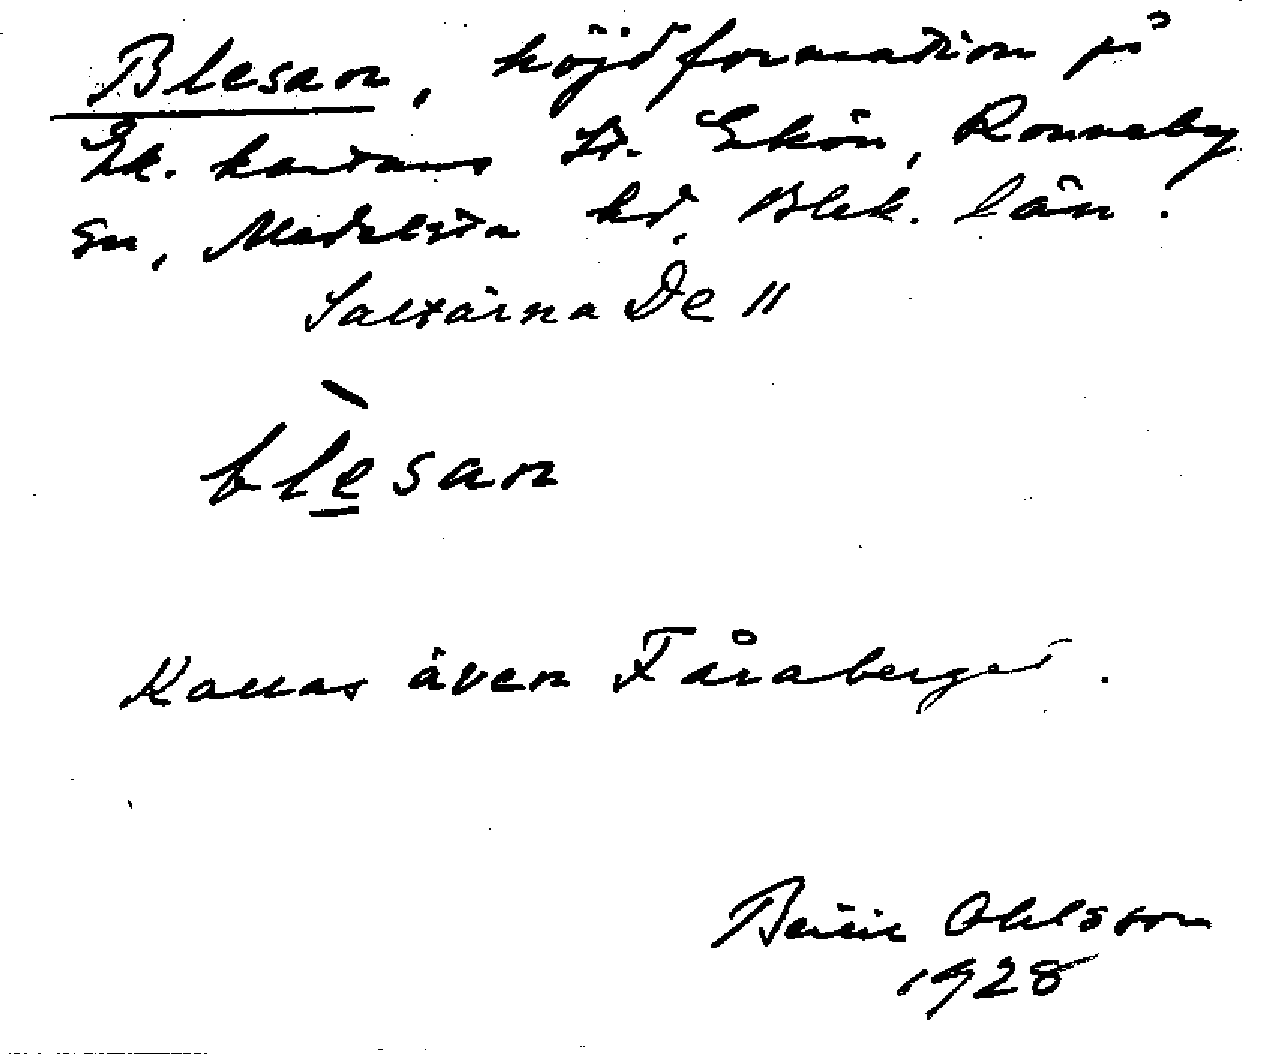 Blesan, höjdformation på
Ek. kartans St. Ekön, Ronneby
sn, Medelsta hd, Blek. län.
Saltärna De 11
blèsan
Kallas även Fåraberget.
Ohlsson
1928